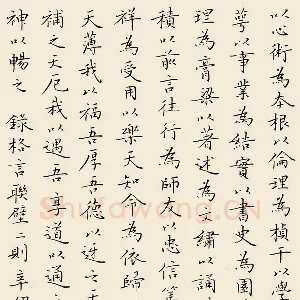 以心術為本根以倫理為楨干以學
萼以事業為結實以書史為園
理為膏粱以著述為文繡以誦
積以前言往行為師友以忠信篤
祥為受用以樂天知命為依歸
天薄我以福吾厚吾德以迓之天
補之天厄我以遇吾享道以通之
神以暢之 錄格言聯璧二則辛
Shufawang.CN